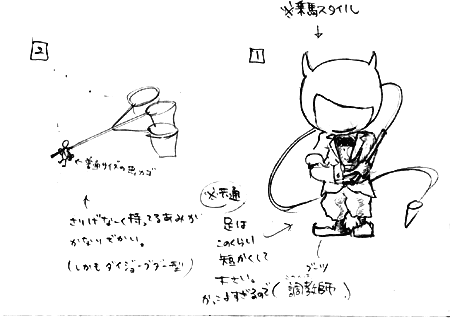 ※乗馬スタイル
2
1
←普通サイズの虫カゴ
さりげなーく持ってるあみが
かなりでかい。
(しかもダイジョーブグー型)
※共通
足は
このくらい
短かくして
下さい。
かっこよすぎるので
ブーツ
(調教師)